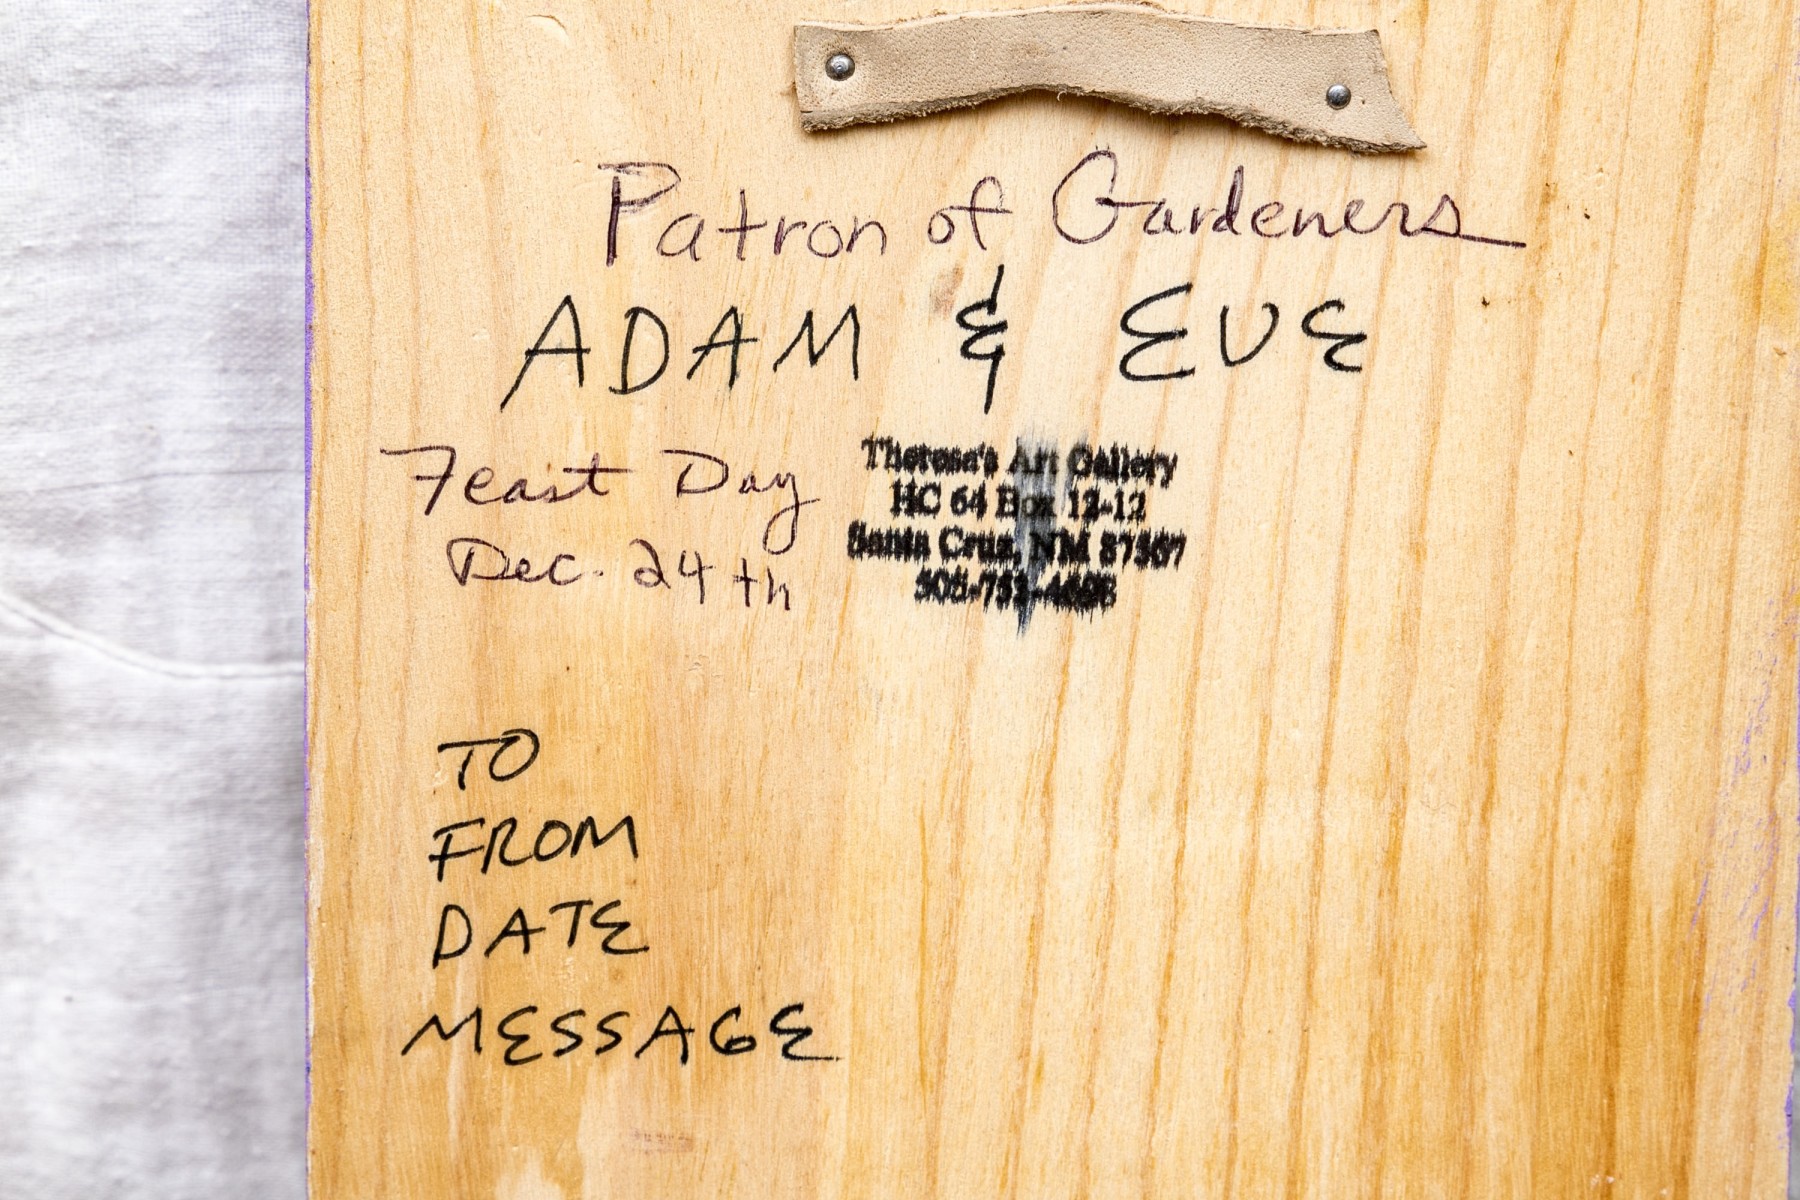 Patron of Gardeners
ADAM & EVE
Feast Day
Dec. 24th
Theresa's Art Gallery
HC 64 Box 12-12
Santa Cruz, NM 87567
TO
FROM
DATE
MESSAGE